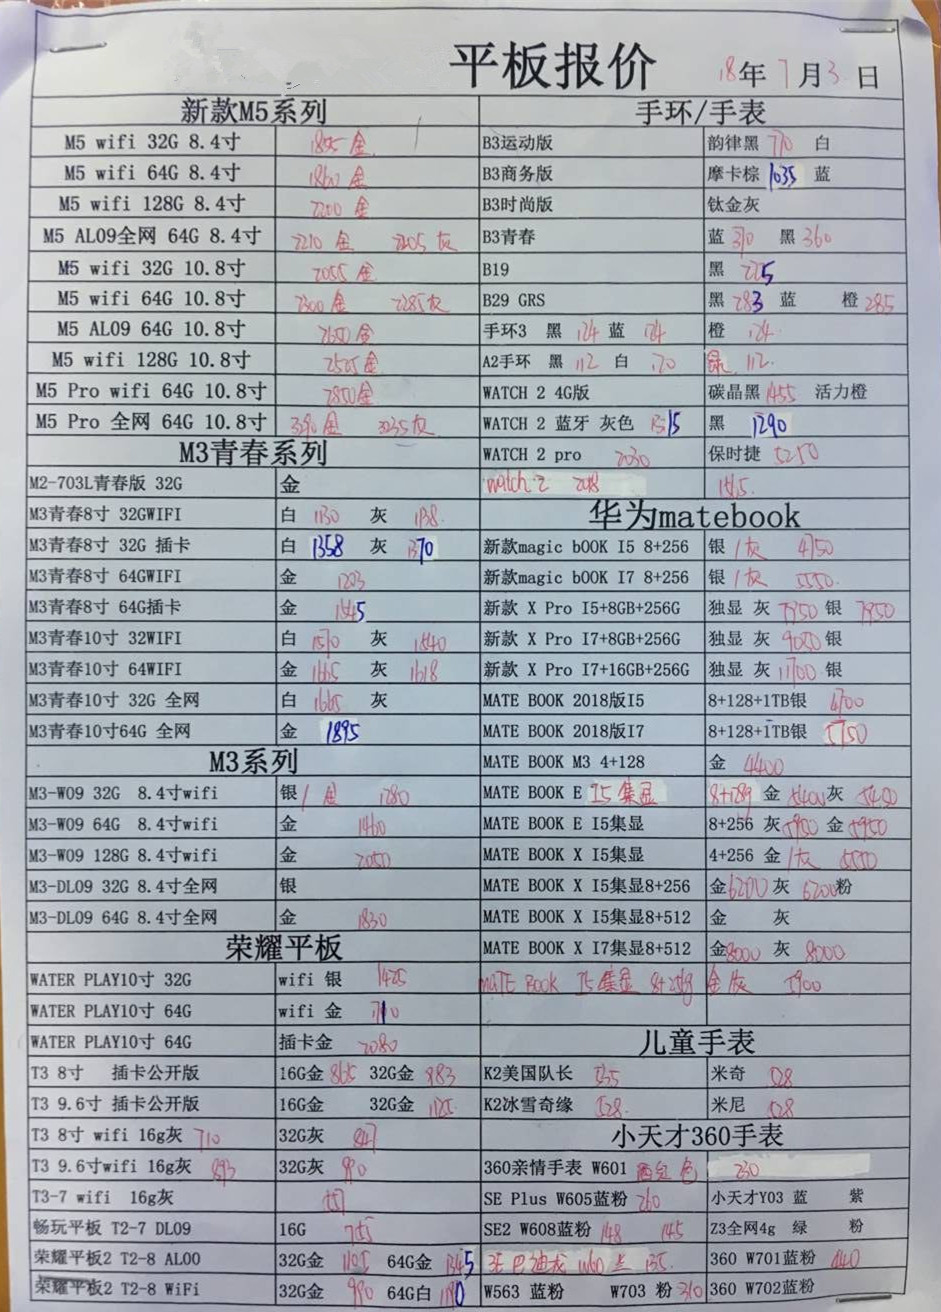 平板报价 18年7月3日
新款M5系列
M5 wifi 32G 8.4寸 金
M5 wifi 64G 8.4寸 1860 金
M5 wifi 128G 8.4寸 2200 金
M5 AL09全网 64G 8.4寸 2210 金 2205 灰
M5 wifi 32G 10.8寸 2055 金
M5 wifi 64G 10.8寸 2300 金 2285 灰
M5 AL09 64G 10.8寸 2650 金
M5 wifi 128G 10.8寸 金
M5 Pro wifi 64G 10.8寸 2850 金
M5 Pro 全网 64G 10.8寸 金 3235 灰
M3青春系列
M2-703L青春版 32G 金
M3青春8寸 32GWIFI 白 1130 灰 1138
M3青春8寸 32G 插卡 白 1358 灰 1370
M3青春8寸 64GWIFI 金 1203
M3青春8寸 64G插卡 金
M3青春10寸 32WIFI 白 1570 灰 1540
M3青春10寸 64WIFI 金 1665 灰 1618
M3青春10寸 32G 全网 白 1665 灰
M3青春10寸64G 全网 金 1895
M3系列
M3-W09 32G 8.4寸wifi 银/金 1280
M3-W09 64G 8.4寸wifi 金 1460
M3-W09 128G 8.4寸wifi 金 2050
M3-DL09 32G 8.4寸全网 银
M3-DL09 64G 8.4寸全网 金 1830
荣耀平板
WATER PLAY10寸 32G wifi 银 1425
WATER PLAY10寸 64G wifi 金
WATER PLAY10寸 64G 插卡金 2080
T3 8寸 插卡公开版 16G金 865 32G金 983
T3 9.6寸 插卡公开版 16G金 32G金 1125
T3 8寸 wifi 16g灰 710 32G灰 847
T3 9.6寸wifi 16g灰 893 32G灰 990
T3-7 wifi 16g灰
畅玩平板 T2-7 DL09 16G 755
荣耀平板2 T2-8 AL00 32G金 1105 64G金 1345
荣耀平板2 T2-8 WiFi 32G金 990 64G白
手环/手表
B3运动版 韵律黑 770 白
B3商务版 摩卡棕 1035 蓝
B3时尚版 钛金灰
B3青春 蓝 370 黑 360
B19 黑 225
B29 GRS 黑 283 蓝 橙 285
手环3 黑 124 蓝 124 橙 124
A2手环 黑 112 白 120 绿 112
WATCH 2 4G版 碳晶黑 1455 活力橙
WATCH 2 蓝牙 灰色 1315 黑 1290
WATCH 2 pro 2030 保时捷 5250
watch 2 2018
华为matebook
新款magic bOOK I5 8+256 银/灰 4750
新款magic bOOK I7 8+256 银/灰 5550
新款 X Pro I5+8GB+256G 独显 灰 7950 银 7950
新款 X Pro I7+8GB+256G 独显 灰 9050 银
新款 X Pro I7+16GB+256G 独显 灰 11700 银
MATE BOOK 2018版I5 8+128+1TB银 4700
MATE BOOK 2018版I7 8+128+1TB银 5750
MATE BOOK M3 4+128 金 4400
MATE BOOK E I5集显 金 5400 灰 5450
MATE BOOK E I5集显 8+256 灰 5950 金 5950
MATE BOOK X I5集显 4+256 金/灰 5550
MATE BOOK X I5集显8+256 金 6200 灰 6200 粉
MATE BOOK X I5集显8+512 金 灰
MATE BOOK X I7集显8+512 金 8000 灰 8000
MATE BOOK I5集显 8+256g 金灰 5900
儿童手表
K2美国队长 535 米奇 528
K2冰雪奇缘 528 米尼 528
小天才360手表
360亲情手表 W601 西红色 230
SE Plus W605蓝粉 260 小天才Y03 蓝 紫
SE2 W608蓝粉 148 145 Z3全网4g 绿 粉
SE 巴迪龙 W601 兰 135 360 W701蓝粉 440
W563 蓝粉 W703 粉 310 360 W702蓝粉